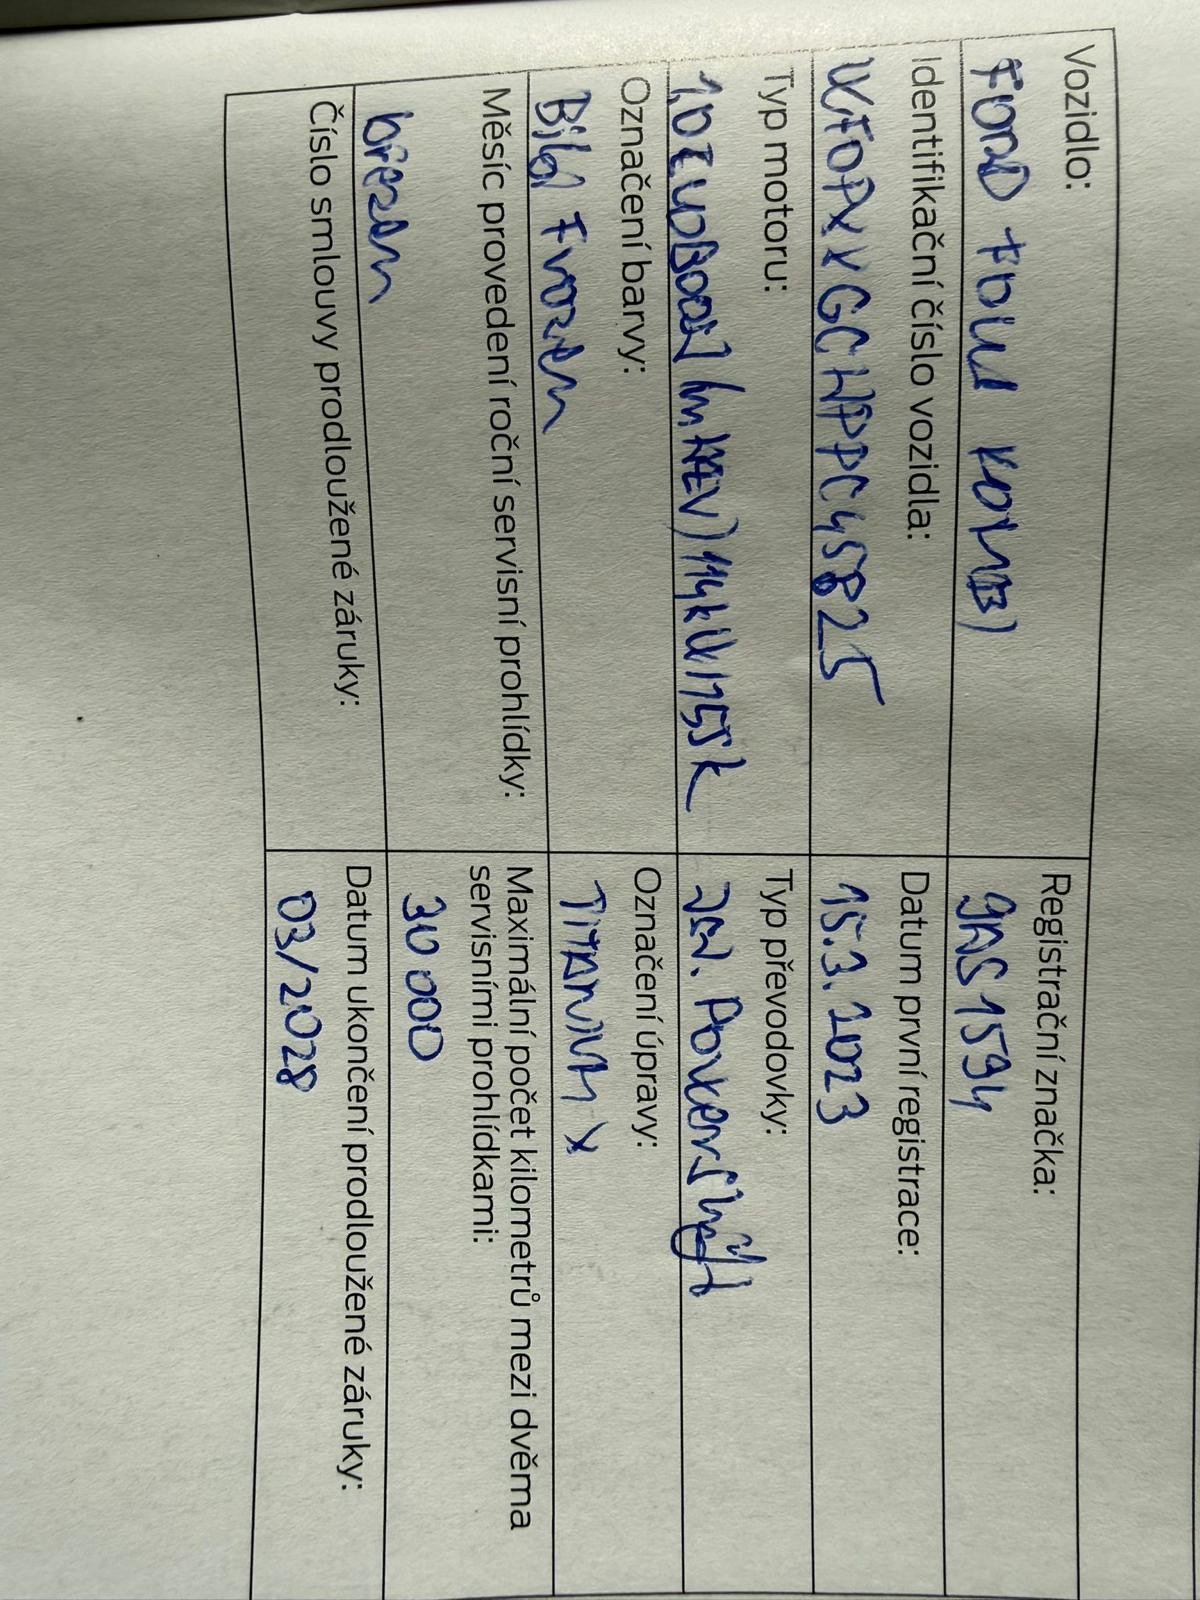 Vozidlo:
FORD FOCUS KOMBI
Registrační značka:
9AS1594
Identifikační číslo vozidla:
WF0PXXGCHPPC45825
Datum první registrace:
15.3.2023
Typ motoru:
1.0 ECOBOOST (mHEV) 114kW/155k
Typ převodovky:
7st. Powershift
Označení barvy:
Bílá Frozen
Označení úpravy:
TITANIUM X
Měsíc provedení roční servisní prohlídky:
březen
Maximální počet kilometrů mezi dvěma
servisními prohlídkami:
30 000
Číslo smlouvy prodloužené záruky:
Datum ukončení prodloužené záruky:
03/2028